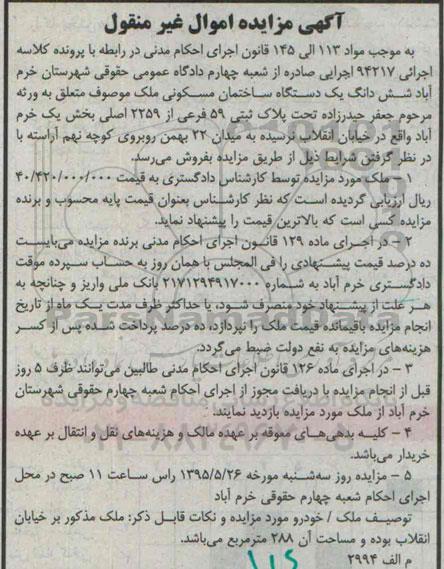 آگهی مزایده اموال غیر منقول
به موجب مواد ۱۱۳ الی ۱۴۵ قانون اجرای احکام مدنی در رابطه با پرونده کلاسه
اجرائی ۹۴۲۱۷ اجرایی صادره از شعبه چهارم دادگاه عمومی حقوقی شهرستان خرم
آباد شش دانگ یک دستگاه ساختمان مسکونی ملک موصوف متعلق به ورثه
مرحوم جعفر حیدرزاده تحت پلاک ثبتی ۵۹ فرعی از ۲۲۵۹ اصلی بخش یک خرم
آباد واقع در خیابان انقلاب نرسیده به میدان ۲۲ بهمن روبروی کوچه نهم آراسته با
در نظر گرفتن شرایط ذیل از طریق مزایده بفروش می‌رسد.
۱ – ملک مورد مزایده توسط کارشناس دادگستری به قیمت ۴۰/۴۲۰/۰۰۰/۰۰۰
ریال ارزیابی گردیده است که نظر کارشناس بعنوان قیمت پایه محسوب و برنده
مزایده کسی است که بالاترین قیمت را پیشنهاد نماید.
۲ – در اجرای ماده ۱۲۹ قانون اجرای احکام مدنی برنده مزایده می‌بایست
ده درصد قیمت پیشنهادی را فی المجلس یا همان روز به حساب سپرده موقت
دادگستری خرم آباد به شماره ۲۱۷۱۲۹۴۹۱۷۰۰۰ بانک ملی واریز و چنانچه به
هر علت از پیشنهاد خود منصرف شود، یا حداکثر ظرف مدت یک ماه از تاریخ
انجام مزایده باقیمانده قیمت ملک را نپردازد، ده درصد پرداخت شده پس از کسر
هزینه‌های مزایده به نفع دولت ضبط می‌گردد.
۳ – در اجرای ماده ۱۲۶ قانون اجرای احکام مدنی طالبین می‌توانند ظرف ۵ روز
قبل از انجام مزایده با دریافت مجوز از اجرای احکام شعبه چهارم حقوقی شهرستان
خرم آباد از ملک مورد مزایده بازدید نمایند.
۴ – کلیه بدهی‌های معوقه بر عهده مالک و هزینه‌های نقل و انتقال بر عهده
خریدار می‌باشد.
۵ – مزایده روز سه‌شنبه مورخه ۱۳۹۵/۵/۲۶ راس ساعت ۱۱ صبح در محل
اجرای احکام شعبه چهارم حقوقی خرم آباد
توصیف ملک / خودرو مورد مزایده و نکات قابل ذکر: ملک مذکور بر خیابان
انقلاب بوده و مساحت آن ۲۸۸ مترمربع می‌باشد.
م الف ۲۹۹۴